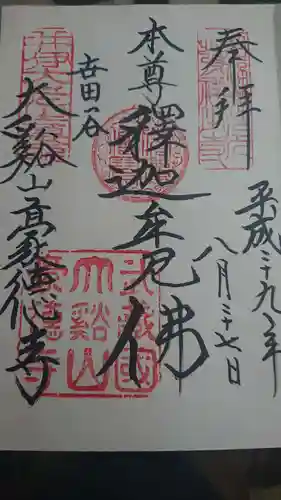 奉拝
平成二十九年
八月二十七日
本尊
釋迦牟尼佛
世田谷
大谿山豪徳寺
武蔵國
大谿山
豪徳寺